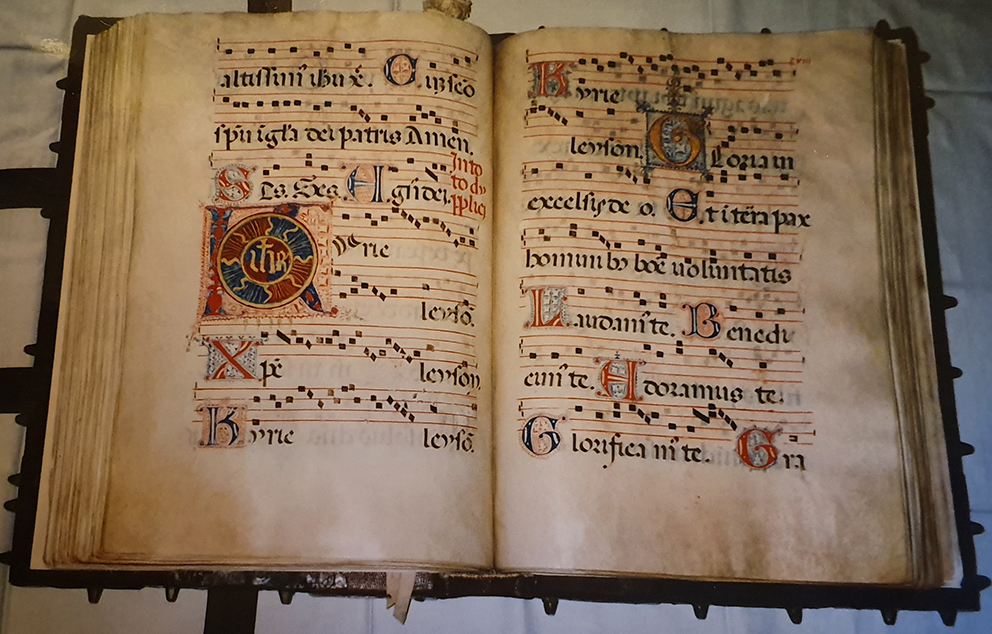 altissim' ihu xp̄. C. ūseō
spū i gl'a dei patris Amen.
Scs. Scs. A. gn' dei.
In to
to du
pplici
Kyrie
leysō.
Xpē leyson
Kyrie leysō.
Kyrie
leyson. Gloria in
excelsis de o. Et i terra pax
homini b9 boē uoluntatis
Laudam' te. Benedi
cim' te. Adoramus te.
Glorifica m' te. Gra